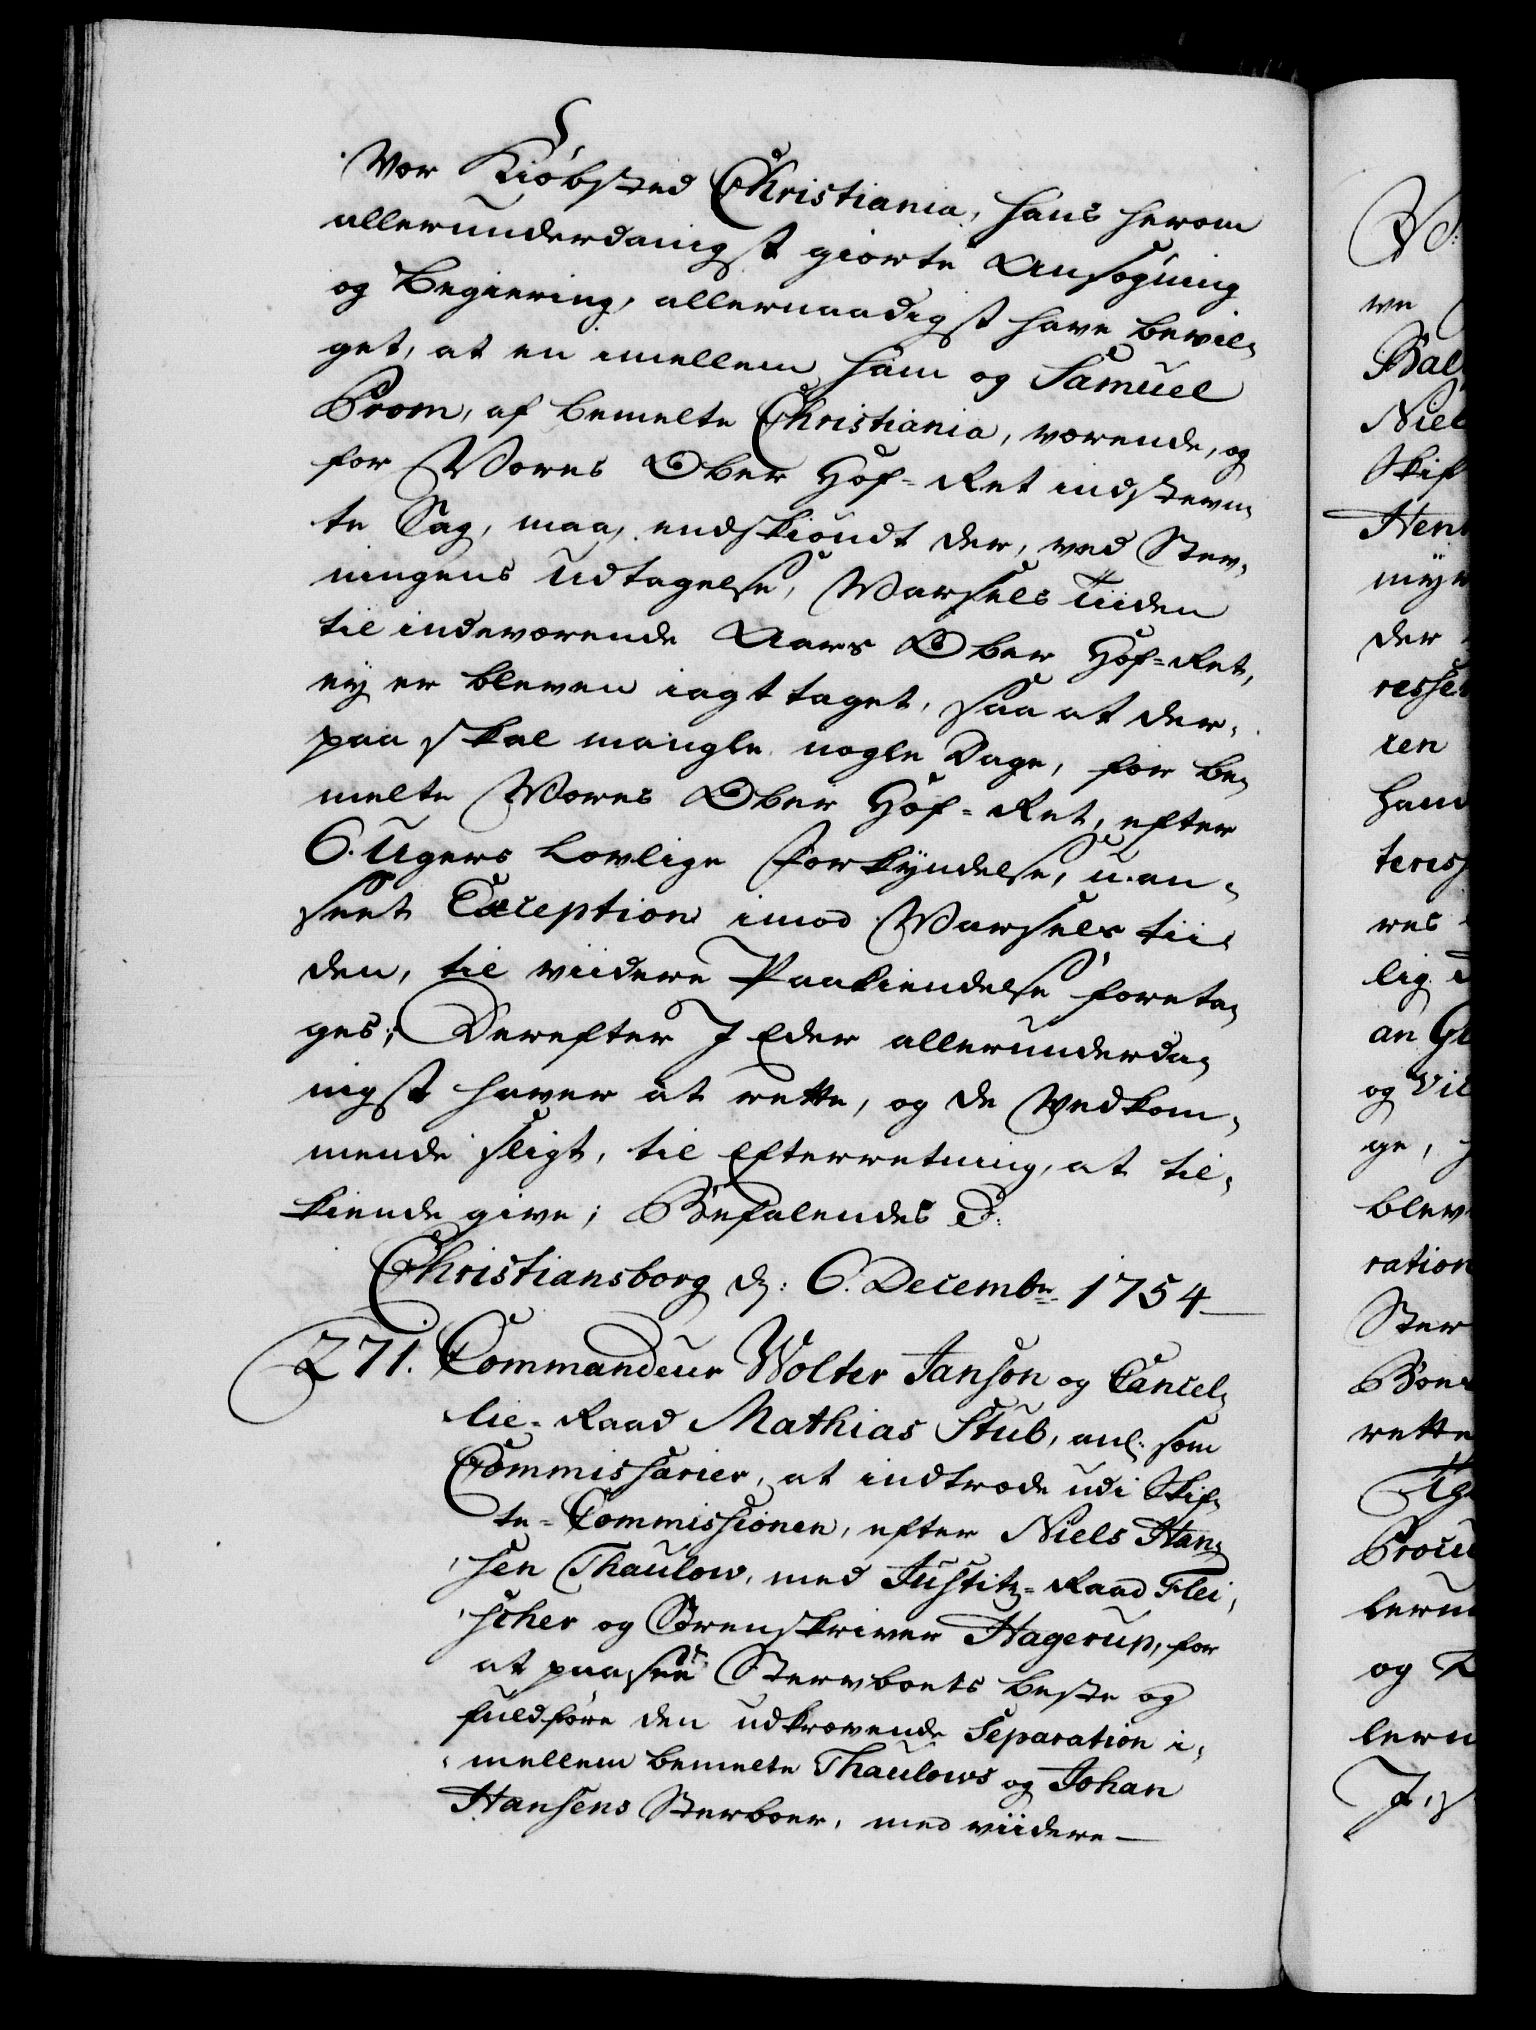 Vor Kiøbsted Christiania, hans herom
allerunderdanigst giorte Ansøgning
og Begiering, allernaadigst have bevil-
get, at en imellem ham og Samuel
Brom, af bemelte Christiania, værende, og
for Vores Ober Hof-Ret indstevn-
te Sag, maa, endskiøndt der, ved Stev-
ningens Udtagelse, Varsels Tiiden
til indeværende Aars Ober Hof-Ret,
ey er bleven iagttaget, saa at der-
paa skal mangle nogle Dage, for be-
melte Vores Ober Hof-Ret, efter
6. Ugers Lovlige Forkyndelse, u-an-
seet Exception imod Varsels tii-
den, til viidere Paakiendelse foreta-
ges; Derefter I Eder allerunderda-
nigst haver at rette, og de Vedkom-
mende sligt, til Efterretning, at til-
kiende give; Befalendes &:
Christiansborg d: 6. Decembr 1754
271. Commandeur Wolter Janson og Cancel-
lie-Raad Mathias Stub, anl: som
Commissarier, at indtræde udi Skif-
te-Commissionen, efter Niels Han-
sen Thaulow, med Justitz-Raad Flei-
scher og Sorenskriver Hagerup, for
at paasee Stervboets beste og
fuldføre den udkrævende Separation i-
mellem bemelte Thaulows og Johan
Hansens Sterboer, med viidere
ve
Bal
Niel
Skif
Hen
myn
der
resse
ren
ham
teress
res
lig
an Gl
og Vil
ge,
blev
ration
Ster
rette
Procu
lerun
og
lern